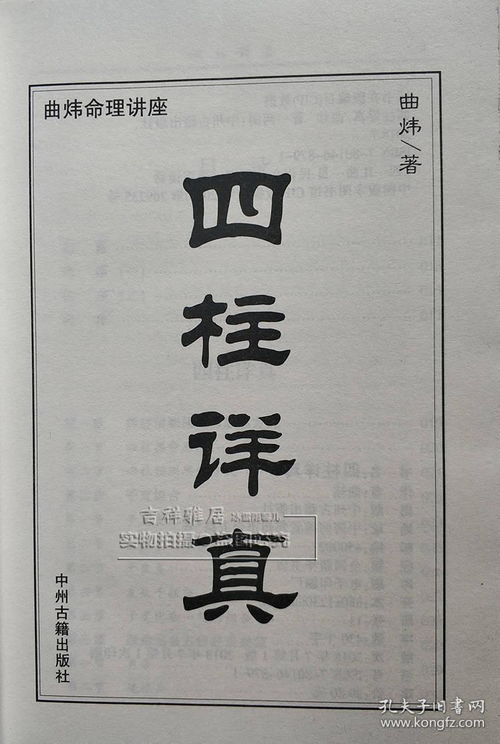 曲炜命理讲座
曲炜/著
四柱详真
中州古籍出版社
吉祥雅居
实物拍摄
孔夫子旧书网
www.kongfz.com